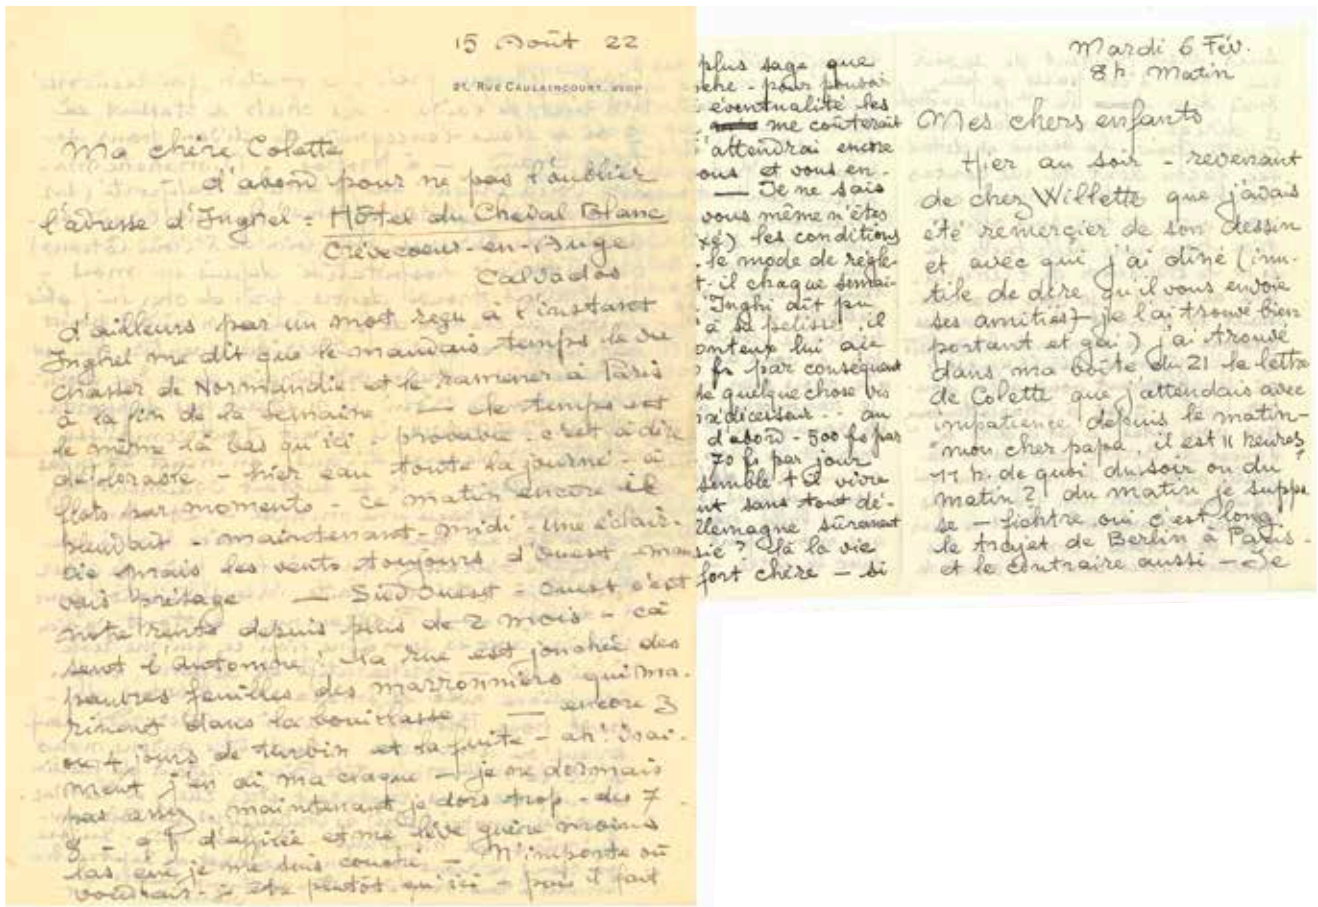 15 Août 22
21, RUE CAULAINCOURT. XVIII
Ma chère Colette
d'abord pour ne pas l'oublier
l'adresse d'Inghel : Hôtel du Cheval Blanc
Crèvecoeur-en-Auge
Calvados
d'ailleurs par un mot reçu à l'instant
Inghel me dit que le mauvais temps le
chasser de Normandie et le ramener à Paris
à la fin de la semaine — le temps est
le même là bas qu'ici - probable - c'est à dire
- hier eau toute la journé - à
flots par moments - ce matin encore il
pleuvait - maintenant - midi - une éclair-
cie mais les vents toujours d'ouest mau-
vais présage — Sud Ouest - Ouest, c'est
notre depuis plus de 2 mois - cà
sent l'automne ! la rue est jonchée des
pauvres feuilles des marronniers qui ma-
rinent dans la bouillasse — encore 3
ou 4 jours de turbin et la fuite - ah ! vrai-
ment j'en ai ma claque - je ne dormais
pas assez maintenant je dors trop - des 7
8 - 9 h d'affilée et me lève guère moins
las que je me suis couché - N'importe où
voudrais-je être plutôt qu'ici - puis il fait
plus sage que
che - pour pouvoir
éventualité les
me coûterait
'attendrai encore
ous et vous en-
— Je ne sais
vous même n'êtes
xé) les conditions
le mode de règle-
t-il chaque semai-
Inghi dit pu
à sa pelisse, il
onteux lui aie
fs par conséquant
de quelque chose vis
.. au
d'abord - 500 fs par
70 fs par jour
semble t il vivre
nt sans tout dé-
llemagne sûrement
sie ? là la vie
fort chère — si
Mardi 6 Fév.
8 h. Matin
Mes chers enfants
Hier au soir - revenant
de chez Willette que j'avais
été remercier de son dessin
et avec qui j'ai diné (inu-
tile de dire qu'il vous envoie
ses amitiés) je l'ai trouvé bien
portant et gai) j'ai trouvé
dans ma boîte du 21 la lettre
de Colette que j'attendais avec
impatience depuis le matin -
mon cher papa, il est 11 heures
11 h. de quoi du soir ou du
matin ? du matin je suppo
se — fichtre oui c'est long
le trajet de Berlin à Paris -
et le contraire aussi — Je